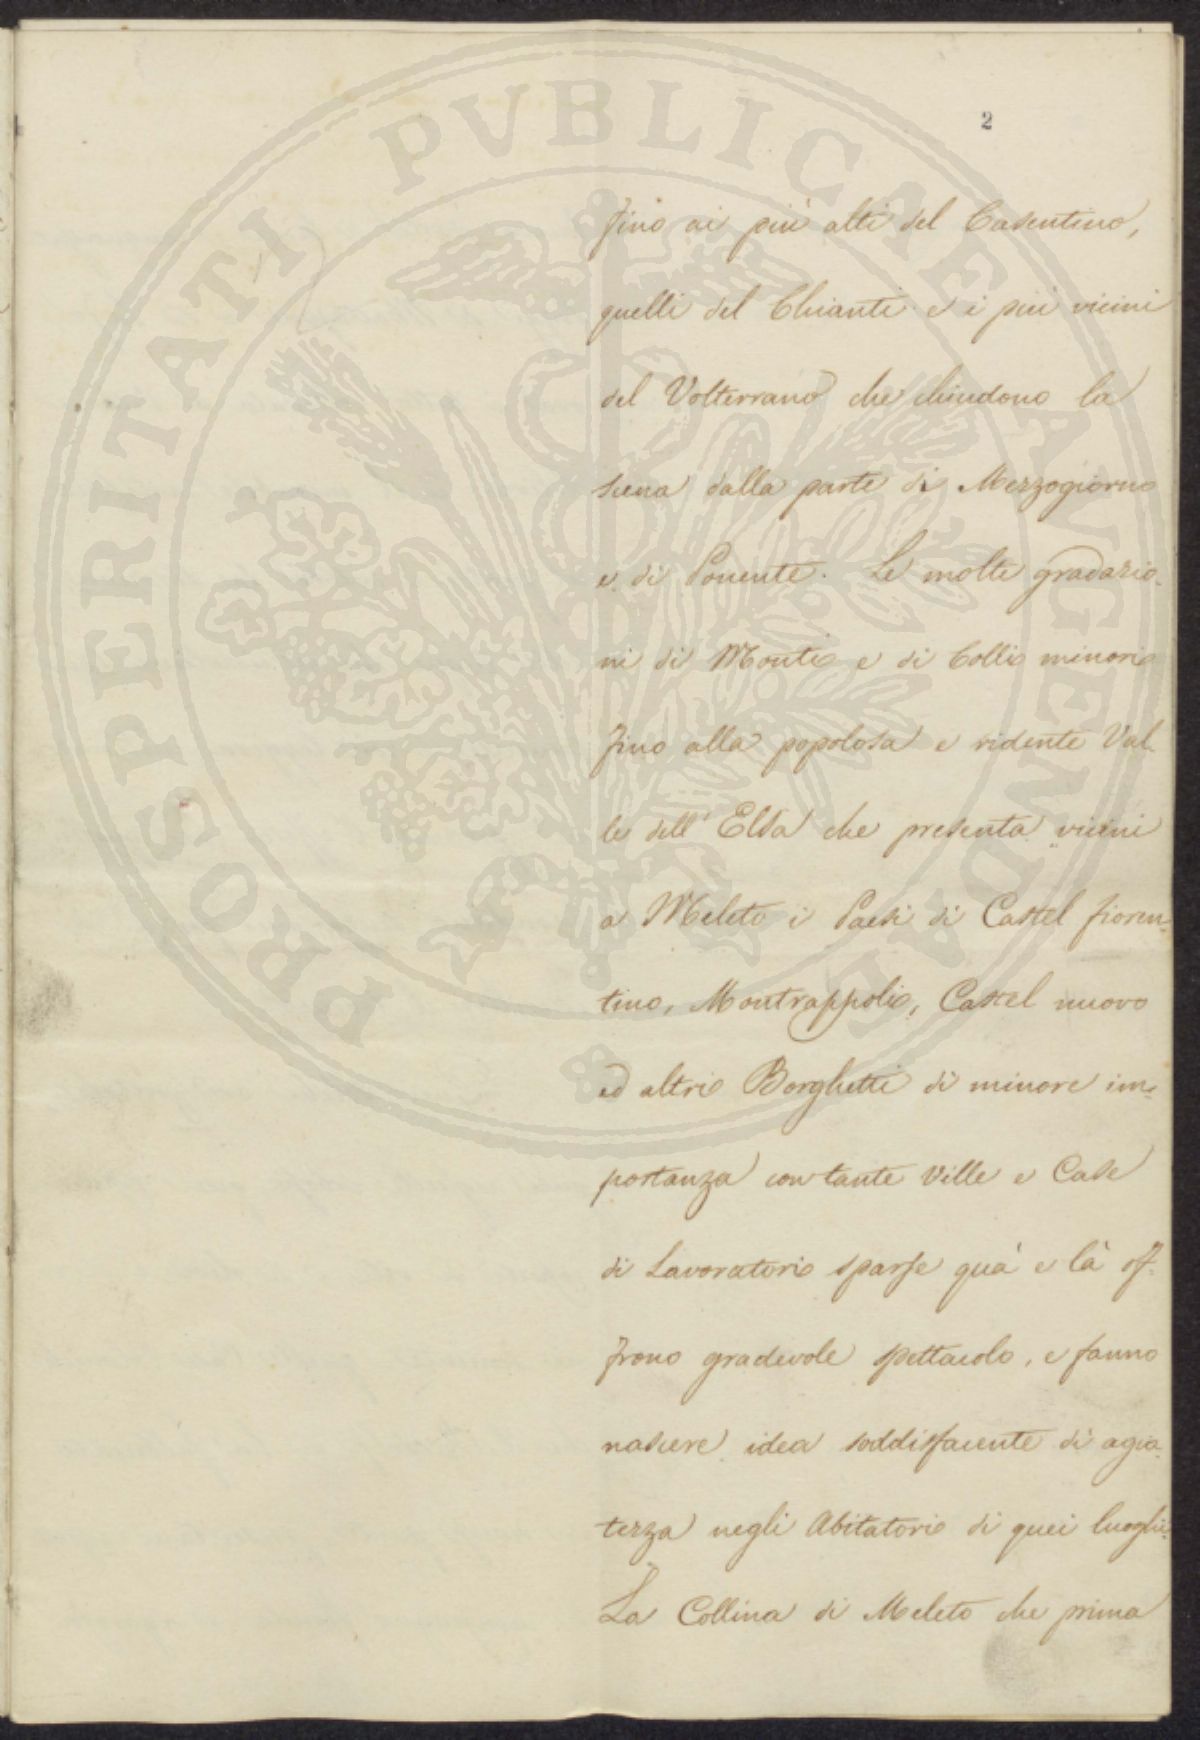 2
fino ai più alti del Casentino,
quelli del Chianti e i più vicini
del Volterrano che chiudono la
scena dalla parte di Mezzogiorno
e di Ponente. Le molte gradazio-
ni di Monti e di Colli minori
fino alla popolosa e ridente Val-
le dell'Elsa che presenta vicini
a Meleto i Paesi di Castel fioren-
tino, Montrappoli, Castel nuovo
ed altri Borghetti di minore im-
portanza con tante Ville e Case
di Lavoratori sparse quà e là of-
frono gradevole spettacolo, e fanno
nascere idea soddisfacente di agia-
tezza negli Abitatori di quei luoghi.
La Collina di Meleto che prima
PROSPERITATI PVBLICAE AVGENDAE